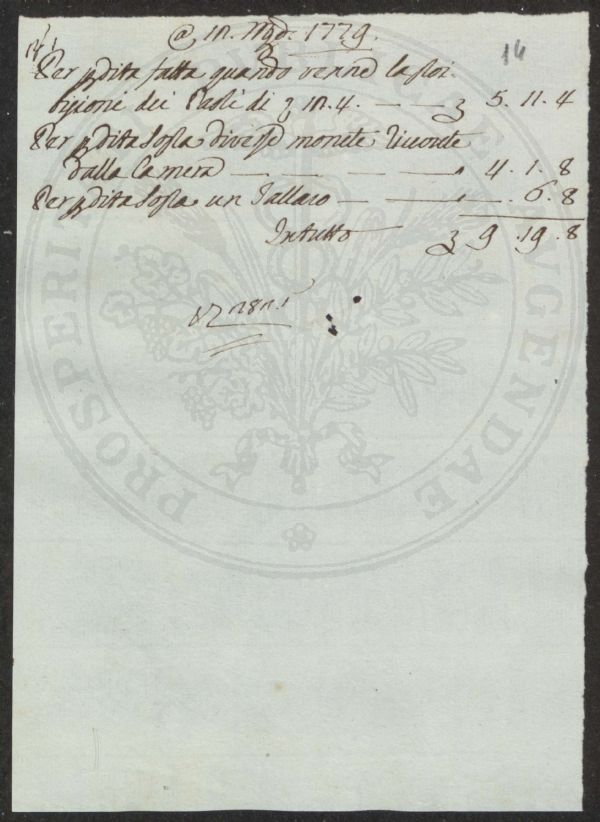 @ in. Mgo. 1779.
14
14
Per pdita fatta quando venne la proi-
bizione dei Paoli di 3 m. 4. — — 3 5. 11. 4
Per pdita sopra diverse monete ricevute
dalla Camera — — — — 4. 1. 8
Per pdita sopra un Tallaro — — . 6. 8
In tutto — 3 9. 19. 8
PROSPERITATI PUBLICAE AUGENDAE